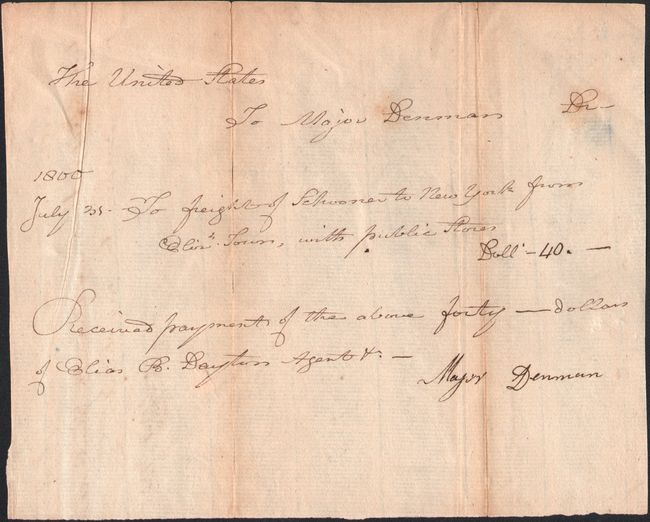 The United States
To Major Denman Dr—
1800
July 21. To freight of Schooner to New York from
Elizth. Town, with public Stores
Doll.—40.—
Received payment of the above forty—dollars
of Elias B. Dayton Agent &.—
Major Denman